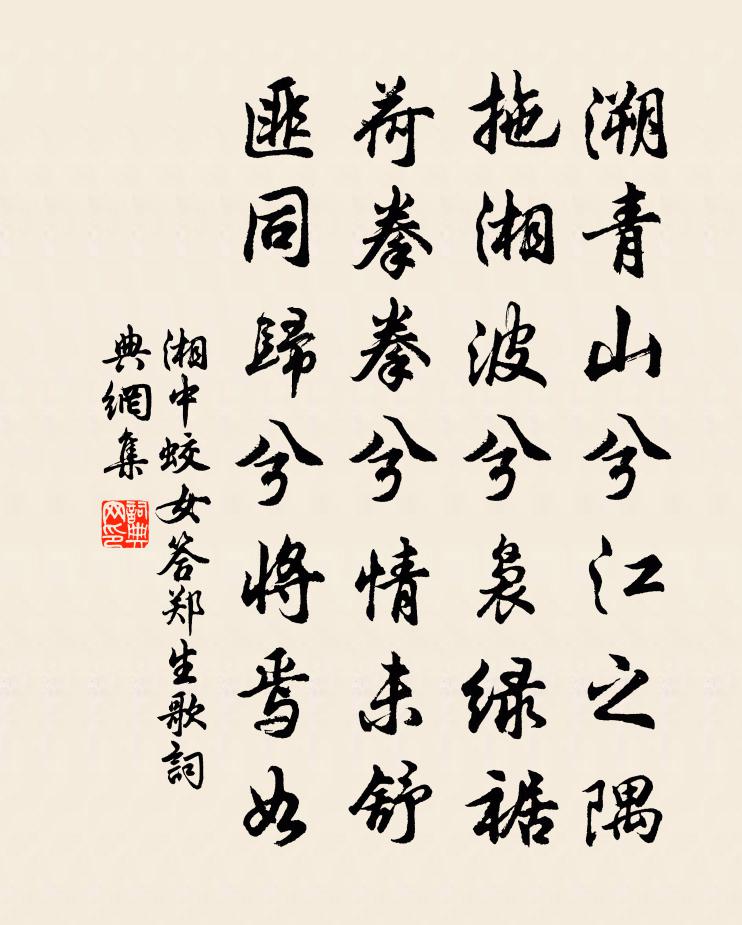 溯青山兮江之隅
拖湘波兮裊绿裾
荷拳拳兮情未舒
匪同歸兮将焉如
湘中蛟女答郑生歌詞
典網集
詞典
网印